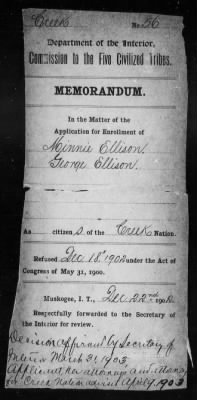 Creek No. 56
Department of the Interior,
Commission to the Five Civilized Tribes.
MEMORANDUM.
In the Matter of the
Application for Enrollment of
Minnie Ellison
George Ellison.
As citizens of the Creek Nation.
Refused Dec 18" 1902 under the Act of
Congress of May 31, 1900.
Muskogee, I. T., Dec 22nd 1902
Respectfully forwarded to the Secretary of
the Interior for review.
Decision affirmed by Secretary of
Interior March 31, 1903
Applicant, her attorney and attorney
for Creek Nation advised April 9, 1903